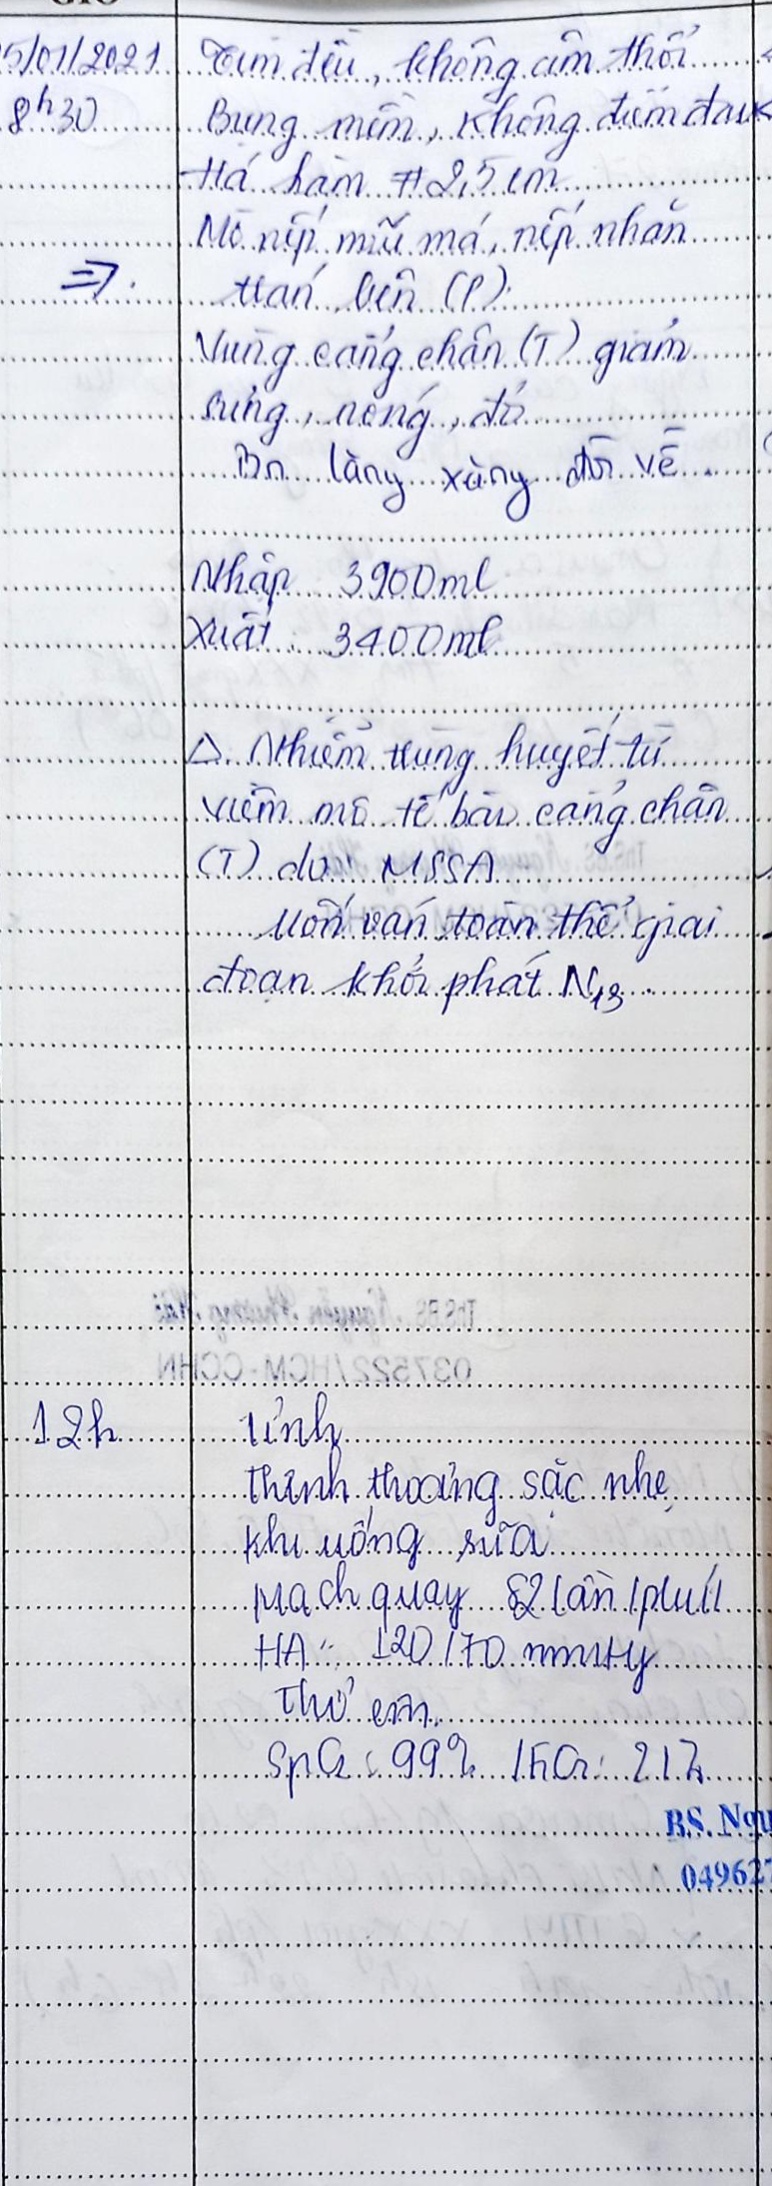 5/01/2021 Tim đều, không âm thổi
8h30 Bụng mềm, không điểm đau
Há hàm ≠ 2,5 cm
Mờ nếp mũi má, nếp nhăn
=> trán bên (P).
Vùng cẳng chân (T) giảm
sưng, nóng, đỏ
Bn lăng xăng đòi về.
Nhập 3900ml
Xuất: 3400ml
Δ. Nhiễm trùng huyết từ
viêm mô tế bào cẳng chân
(T) do MSSA
Uốn ván toàn thể giai
đoạn khởi phát N13.
ThS.BS. Nguyễn
037522/HCM-CCHN
12h tỉnh
thỉnh thoảng sặc nhẹ
khi uống sữa
mạch quay 82 lần/phút
HA: 120/70 mmHg
Thở êm.
SpO2: 99% /FiO2: 21%
BS. Ngu
04962